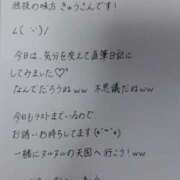 性技の味方 きゅうさんです!
∠( ˙-˙ )/
今日は、気分を変えて直筆日記に
してみました♡
なんでだろうねww 不思議だねww
今日もラストまでいるので
お誘いお待ちしてます(*ˊᵕˋ*)
一緒にヌルヌルの天国へ行こう!ww